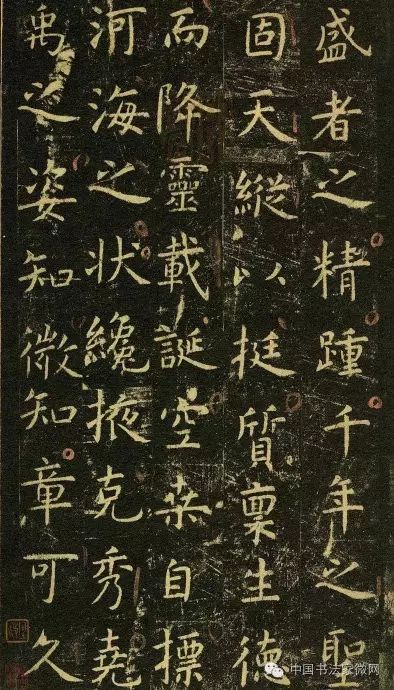 盛者之精踵千年之聖
固天縱以挺質稟生德
而降靈載誕空桒自摽
河海之状纔掖克秀堯
禹之姿知微知章可久
中国书法家微网